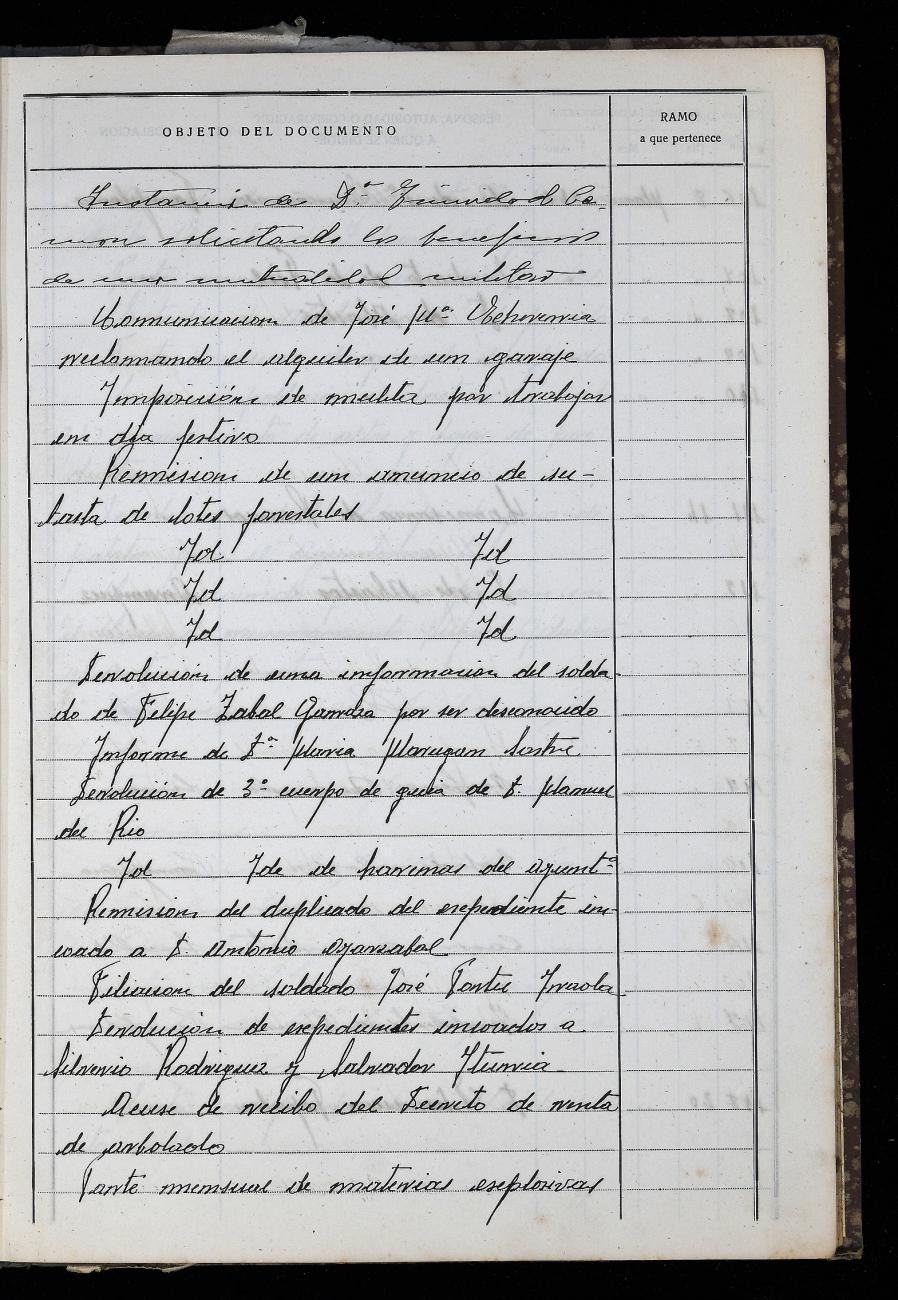 OBJETO DEL DOCUMENTO
RAMO
a que pertenece
Instancia de Dª
solicitando los beneficios
de una mutualidad militar
Comunicacion de José Mª Echeverria
reclamando el alquiler de un garaje
Imposición de multa por trabajar
en dia festivo
Remision de un anuncio de su-
basta de lotes forestales
Id Id
Id Id
Id Id
Devolucion de una informacion del solda-
do de Felipe Zabal Gamboa por ser desconocido
Informe de Dª Maria Marugan Sastre
Devolución de 3º cuerpo de guia de D. Manuel
del Rio
Id Ide de harinas del Ayuntº
Remision del duplicado del expediente in-
coado a D. Antonio Oyarzabal
Filiacion del soldado José Iraola
Devolucion de expedientes incoados a
Silverio Rodriguez y Salvador Iturria
Acuse de recibo del Decreto de venta
de arbolado
Parte mensual de materias explosivas